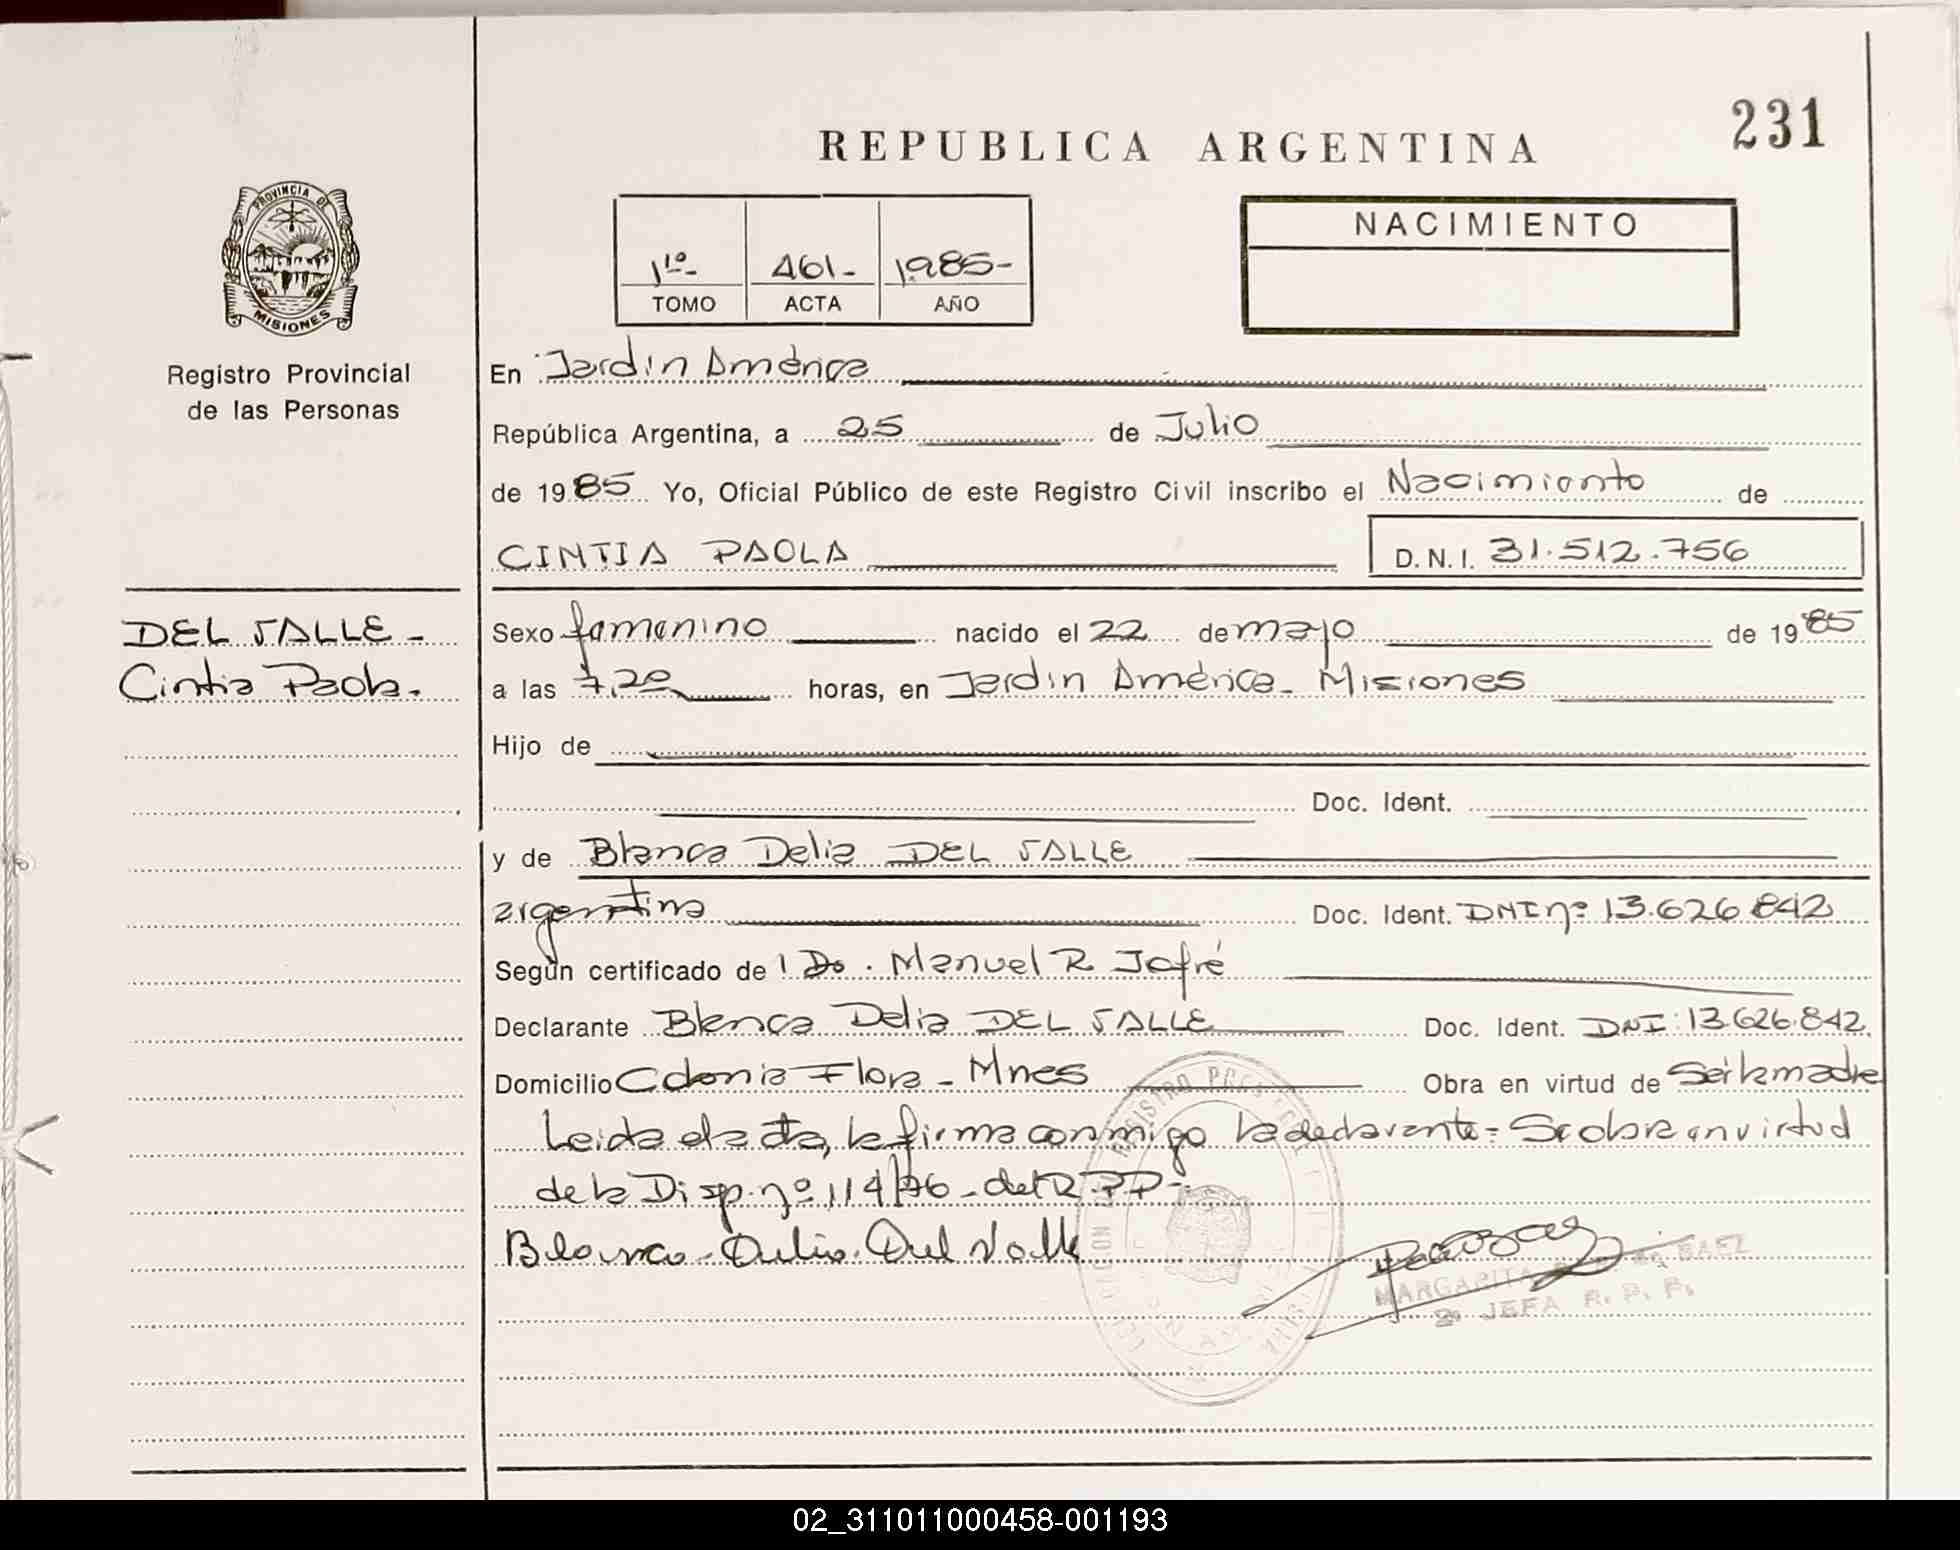 231
REPUBLICA ARGENTINA
PROVINCIA DE
MISIONES
Registro Provincial
de las Personas
1º- 461- 1.985-
TOMO ACTA AÑO
NACIMIENTO
En Jardín América
República Argentina, a 25 de Julio
de 1985 Yo, Oficial Público de este Registro Civil inscribo el Nacimiento de
CINTIA PAOLA D.N.I. 31.512.756
DEL VALLE -
Cintia Paola.
Sexo femenino nacido el 22 de mayo de 1985
a las 7,20 horas, en Jardín América - Misiones
Hijo de
Doc. Ident.
y de Blanca Delia DEL VALLE
argentina Doc. Ident. DNI nº 13.626.842
Según certificado de Manuel R Jofré
Declarante Blanca Delia DEL VALLE Doc. Ident. DNI: 13.626.842.
Domicilio Colonia Flora - Mnes Obra en virtud de Ser la madre
Leída el acta, la firma conmigo la declarante = Se obra en virtud
de la Disp. nº 114/76 - del R.P.P -
Blanca - Delia - Del Valle
MARGARITA BAEZ
JEFA R. P. P.
02_311011000458-001193